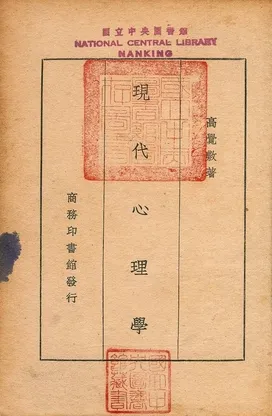 國立中央圖書館
NATIONAL CENTRAL LIBRARY
NANKING
高覺敷著
現代心理學
商務印書館發行